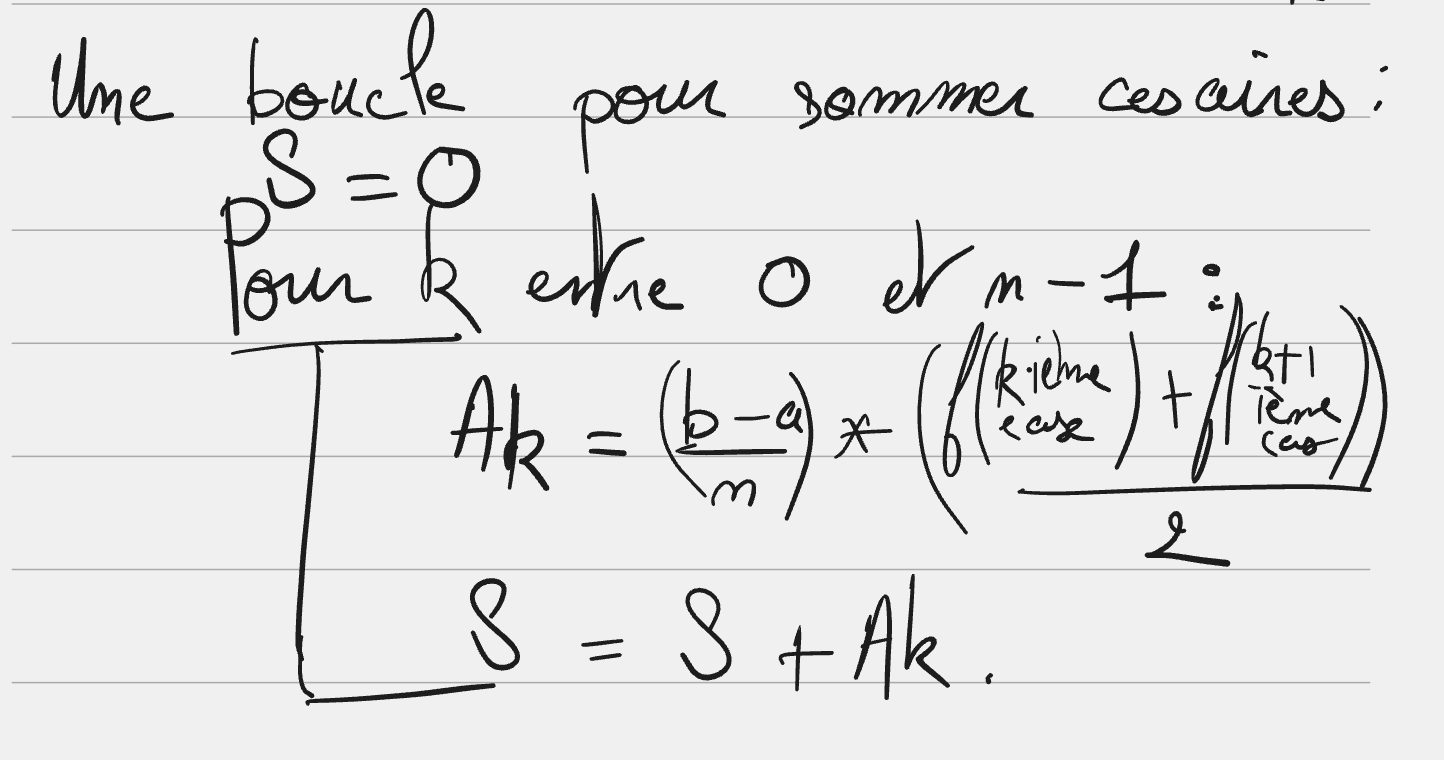 Une boucle pour sommer ces aires :
S = 0
Pour k entre 0 et n-1 :
Ak = (b-a/n) * (f(k-ième case) + f(k+1 ième cas)/2)
S = S + Ak.